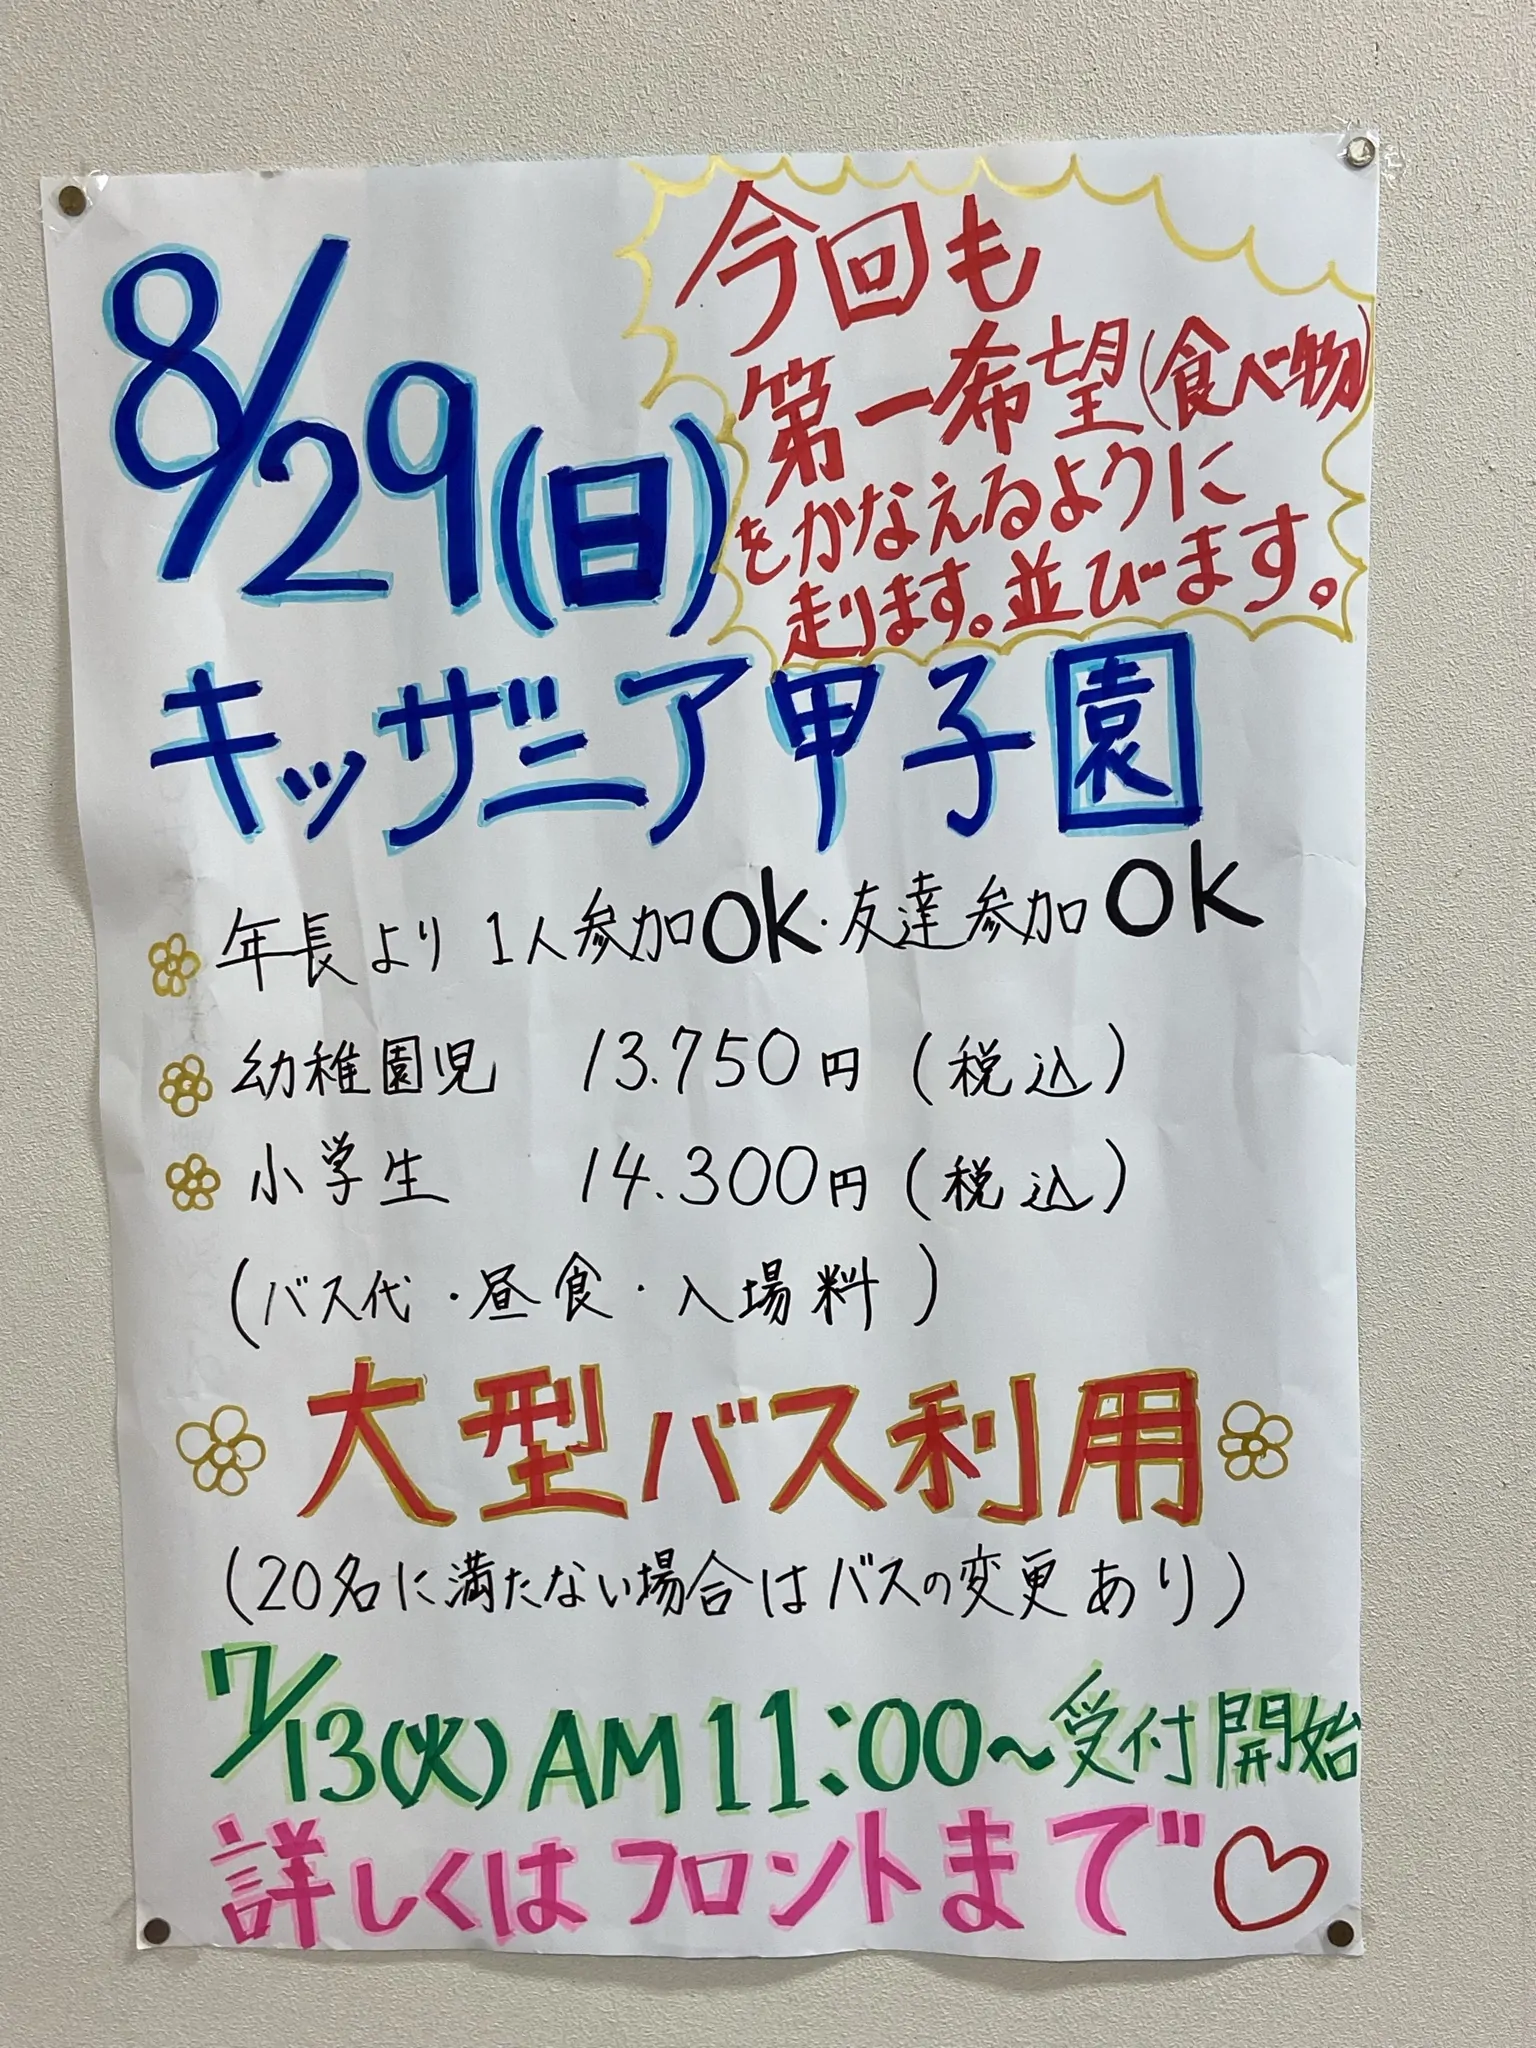 今回も
第一希望(食べ物)
をかなえるように
走ります。並びます。
8/29(日)
キッザニア甲子園
年長より 1人参加OK・友達参加OK
幼稚園児 13.750円(税込)
小学生 14.300円(税込)
(バス代・昼食・入場料)
大型バス利用
(20名に満たない場合はバスの変更あり)
7/13(火)AM11:00〜受付開始
詳しくはフロントまで